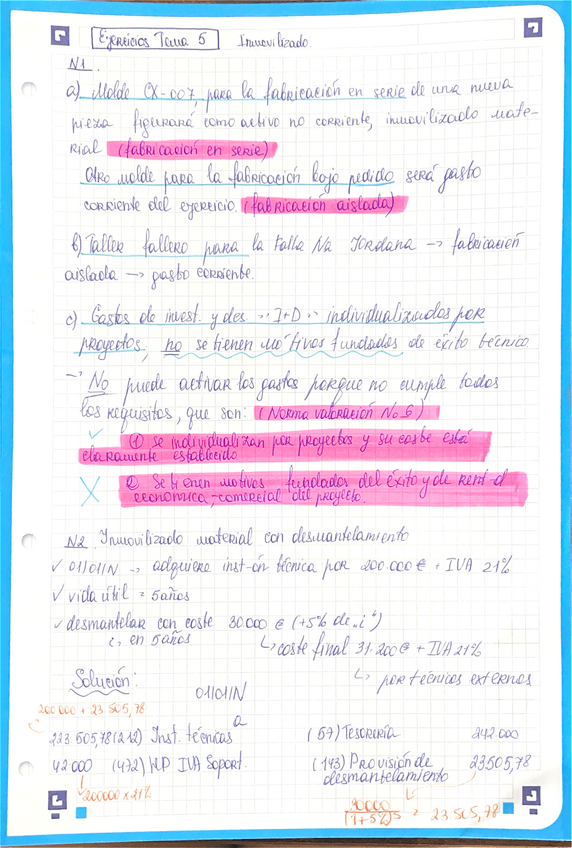 Ejercicios Tema 5 Inmovilizado.
N1.
a) Molde CX-007, para la fabricación en serie de una nueva
pieza figurará como activo no corriente, inmovilizado mate-
rial (fabricación en serie)
Otro molde para la fabricación bajo pedido será gasto
corriente del ejercicio. (fabricación aislada)
b) Taller fallero para la Falla Na Jordana → fabricación
aislada → gasto corriente.
c) Gastos de invest. y des. "I+D" individualizados por
proyectos, no se tienen motivos fundados de éxito técnico
→ No puede activar los gastos porque no cumple todos
los requisitos, que son: (Norma valoración No 6)
✓ ① Se individualizan por proyectos y su coste está
claramente establecido
X ② Se tienen motivos fundados del éxito y de rent-d
económica-comercial del proyecto.
N2. Inmovilizado material con desmantelamiento
✓ 01/01/N → adquiere inst-ón técnica por 200.000 € + IVA 21%
✓ vida útil = 5 años
✓ desmantelar con coste 30.000 € (+5% de "i")
↳ en 5 años ↳ coste final 31.200 € + IVA 21%
Solución: ↳ por técnicos externos
01/01/N
200000 + 23.505,78
223.505,78 (212) Inst. técnicas a (57) Tesorería 242.000
42000 (472) H.P IVA Soport. (143) Provisión de 23505,78
desmantelamiento
200000 x 21%
30000 / (1+5%)^5 = 23.505,78